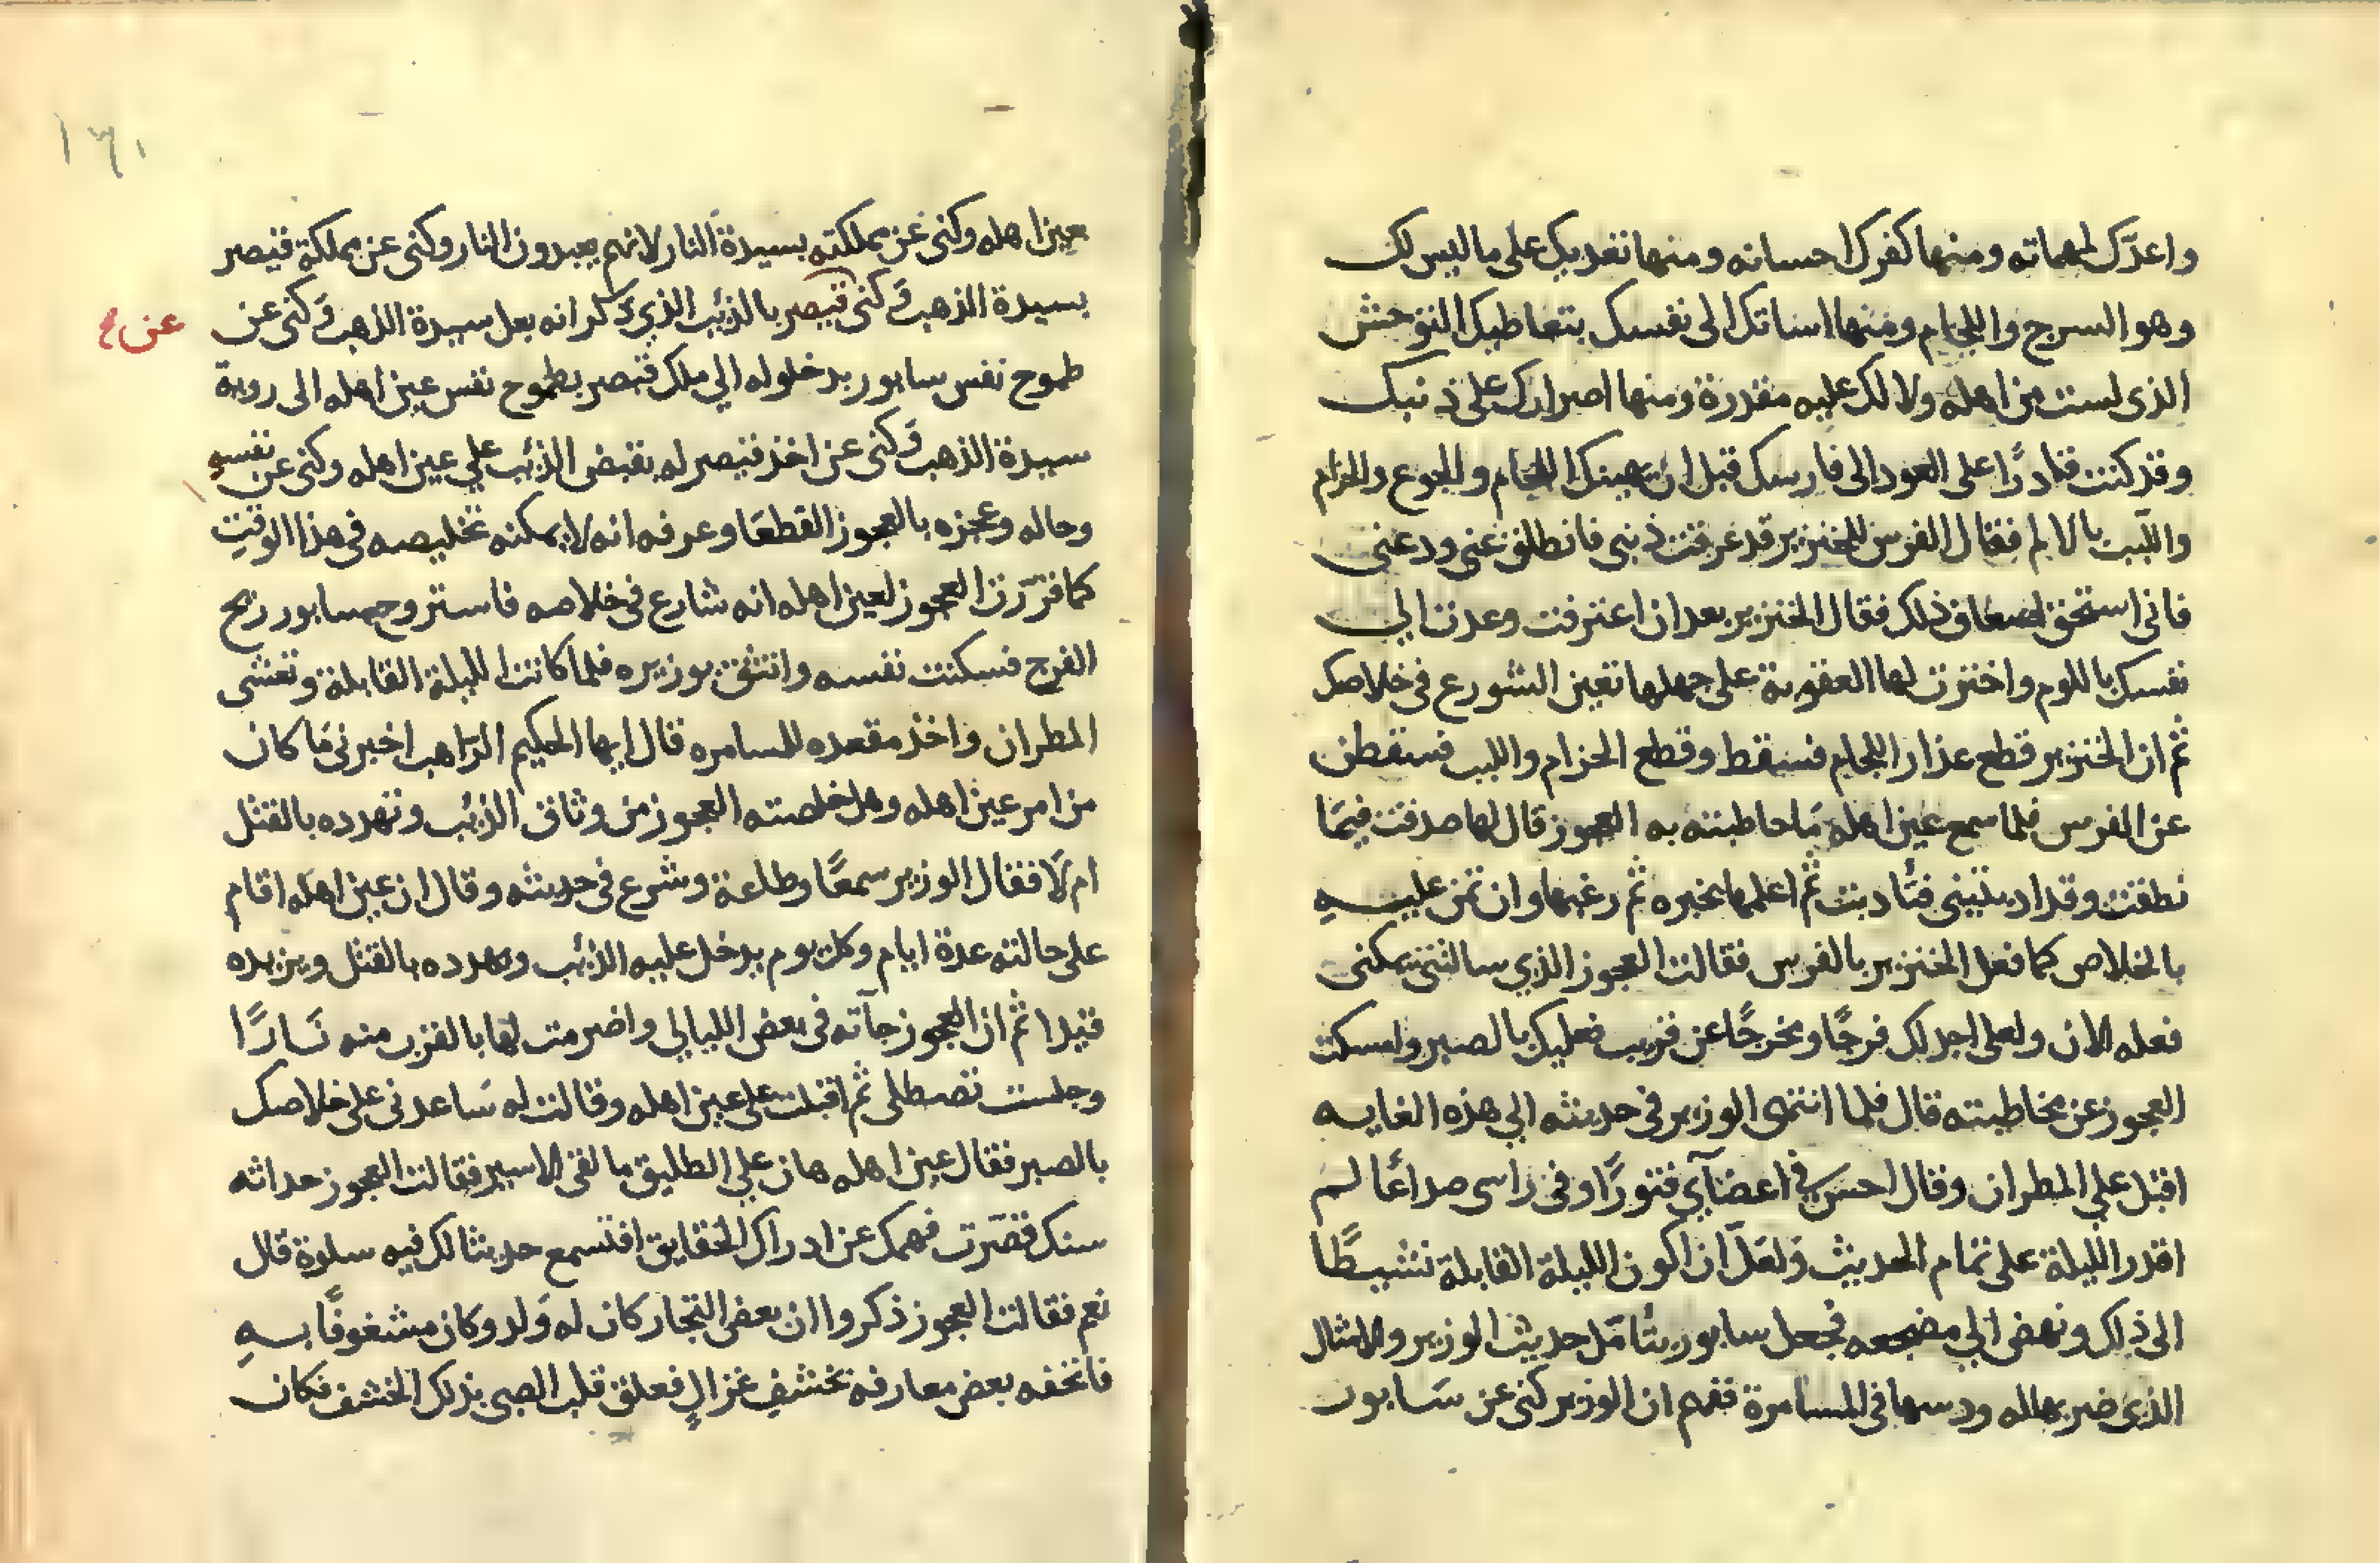 واعدّك لمهماته ومنها كفرك احسانه ومنها تعديك على ما ليس لك
وهو السرج واللجام ومنها اساتك الى نفسك بتعاطيك التوحش
الذى لست من اهله ولا لك عليه مقدرة ومنها اصرارك على ذنبك
وقد كنت قادرًا على العود الى فارسك قبل ان يهينك اللجام والجوع والحزام
واللّبب بالالم فقال الفرس للخنزير قد عرفت ذنبى فانطلق عنى ودعنى
فانى استحق اضعاف ذلك فقال الخنزير بعد ان اعترفت وعدت الي
نفسك باللوم واخترت لها العقوبة على جهلها تعين الشورع فى خلاصك
ثم ان الخنزير قطع عذار اللجام فسقط وقطع الحزام واللبب فسقطن
عن الفرس فلما سمع عين اهله ما خاطبته به العجوز قال لها صدقت فيما
نطقت وقد ادبتينى فتأدبت ثم اعلمها بخبره ثم رغبها وان تمن عليه
بالخلاص كما فعل الخنزير بالفرس فقالت العجوز الذي سالتنى يمكنى
فعله الان ولعلى اجد لك فرجًا ومخرجًا عن قريب فعليك بالصبر وامسكت
العجوز عن مخاطبته قال فلما انتهى الوزير فى حديثه الي هذه الغايه
اقبل علي المطران وقال احس في اعضآي فتورًا وفى راسى صداعًا لم
اقدر الليلة على تمام الحديث ولعلّ ان اكون الليلة القابلة نشيطًا
الى ذلك ونهض الي مضجعه فجعل سابور يتأمّل حديث الوزير والامثال
الذى ضربها له ودسها فى المسامرة ففهم ان الوزير كنى عن سابور
١٦١
بعين اهله وكنى عن مملكته بسيدة النار لانهم يعبدون النار وكنى عن مملكة قيصر
بسيدة الذهب وكنى قيصر بالذئب الذي ذكر انه بعل سيدة الذهب وكنى عن
عن
طموح نفس سابور بدخلوله الي ملك قيصر بطموح نفس عين اهله الى روية
سيدة الذهب وكنى عن اخذ قيصر له بقبض الذئب علي عين اهله وكنى عن نفسه
وحاله وعجزه بالعجوز القطعا وعرفه انه لا يمكنه تخليصه فى هذا الوقت
كما قرّرت العجوز لعين اهله انه شارع فى خلاصه فاستروح سابور ريح
الفرج فسكنت نفسه وانثق بوزيره فلما كانت الليلة القابلة وتعشى
المطران واخذ مقعده للسامره قال ايها الحكيم الرّاهب اخبرنى ما كان
من امر عين اهله وهل خلصته العجوز من وثاق الذئب وتهدده بالقتل
ام لا فقال الوزير سمعًا وطاعة وشرع فى حديثه وقال ان عين اهله اقام
على حالته عدة ايام وكل يوم يدخل عليه الذئب ويهدده بالقتل ويزيده
قيدا ثم ان العجوز جآته فى بعض الليالي واضرمت لها بالقرب منه نارًا
وجلست تصطلى ثم اقبلت على عين اهله وقالت له ساعدنى على خلاصك
بالصبر فقال عين اهله هان علي الطليق ما لقى الاسير فقالت العجوز حداثه
سنك قصّرت فهمك عن ادراك الحقايق افتسمع حديثا لك فيه سلوة قال
نعم فقالت العجوز ذكروا ان بعض التجار كان له ولد وكان مشغوفًا به
فاتحفه بعض معارفه بخشف غزال فعلق قلب الصبى بذلك الخشف فكان